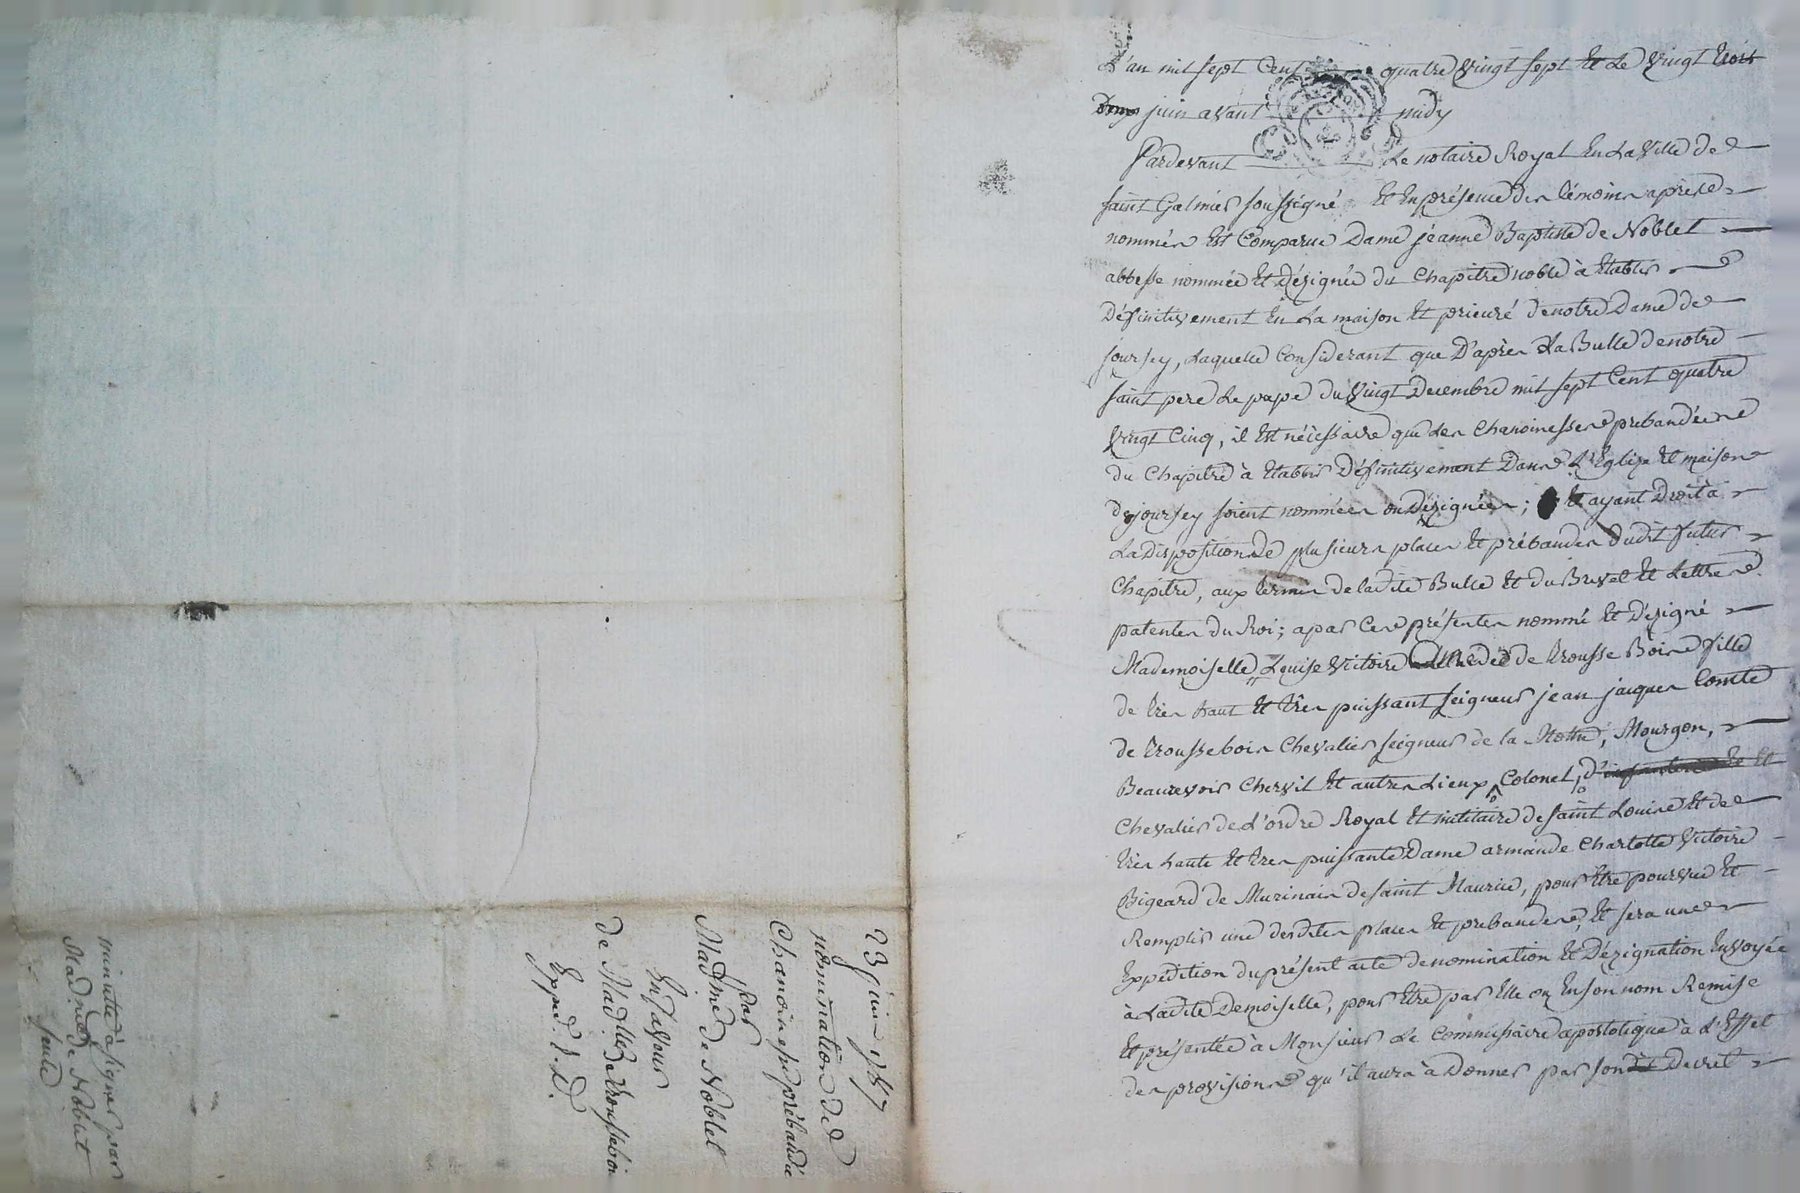 L'an mil sept Cent quatre Vingt sept Et Le Vingt trois
juin avant midy
Pardevant Le notaire Royal En La Ville de
saint Galmier soussigné Et En présence des témoins après
nommés Est Comparue Dame jeanne Baptiste de Noblet
abbesse nommée Et Désignée du Chapitre noble à Etablir
Définitivement En La maison Et prieuré de notre Dame de
joursey, Laquelle Considerant que D'après La Bulle de notre
saint pere Le pape du Vingt Decembre mil sept Cent quatre
Vingt Cinq, il Est nécéssaire que Les Chanoinesses prebandées
du Chapitre à Etablir Définitivement Dans L'Eglize Et maison
de joursey soient nommées ou Désignées; Et ayant Droit à
La Disposition de plusieurs places Et prébandes dudit futur
Chapitre, aux termes de ladite Bulle Et du Brevet Et Lettres
patentes du Roi; a par Ces présentes nommé Et Désigné
Mademoiselle Louise Victoire de trousse Bois fille
de très haut Et très puissant seigneur jean jacques Comte
de troussebois Chevalier seigneur de la Mothe, Mourgon,
Beaurevoir Chervil Et autres Lieux, Colonel, d'infanterie Et
Chevalier de L'ordre Royal Et militaire de saint Louis Et de
très haute Et très puissante Dame armande Charlotte Victoire
Bigeard de Murinais de saint Maurice, pour Etre pourvue Et
Remplir une desdites places Et prebandes, Et sera une
Expédition du présent acte de nomination Et Désignation Envoyée
à Ladite Demoiselle, pour Etre par Elle ou En son nom Remise
Et présentée à Monsieur Le Commissaire apostolique à L'Effet
des provisions qu'il aura à Donner par son Decret
23 juin 1787
nomination de
Chanoinesse prébandée
par
Madame de Noblet
En faveur
de Mad.lle de troussebois
Exped. s. D.
minute à signer par
Mad. de Noblet
seule